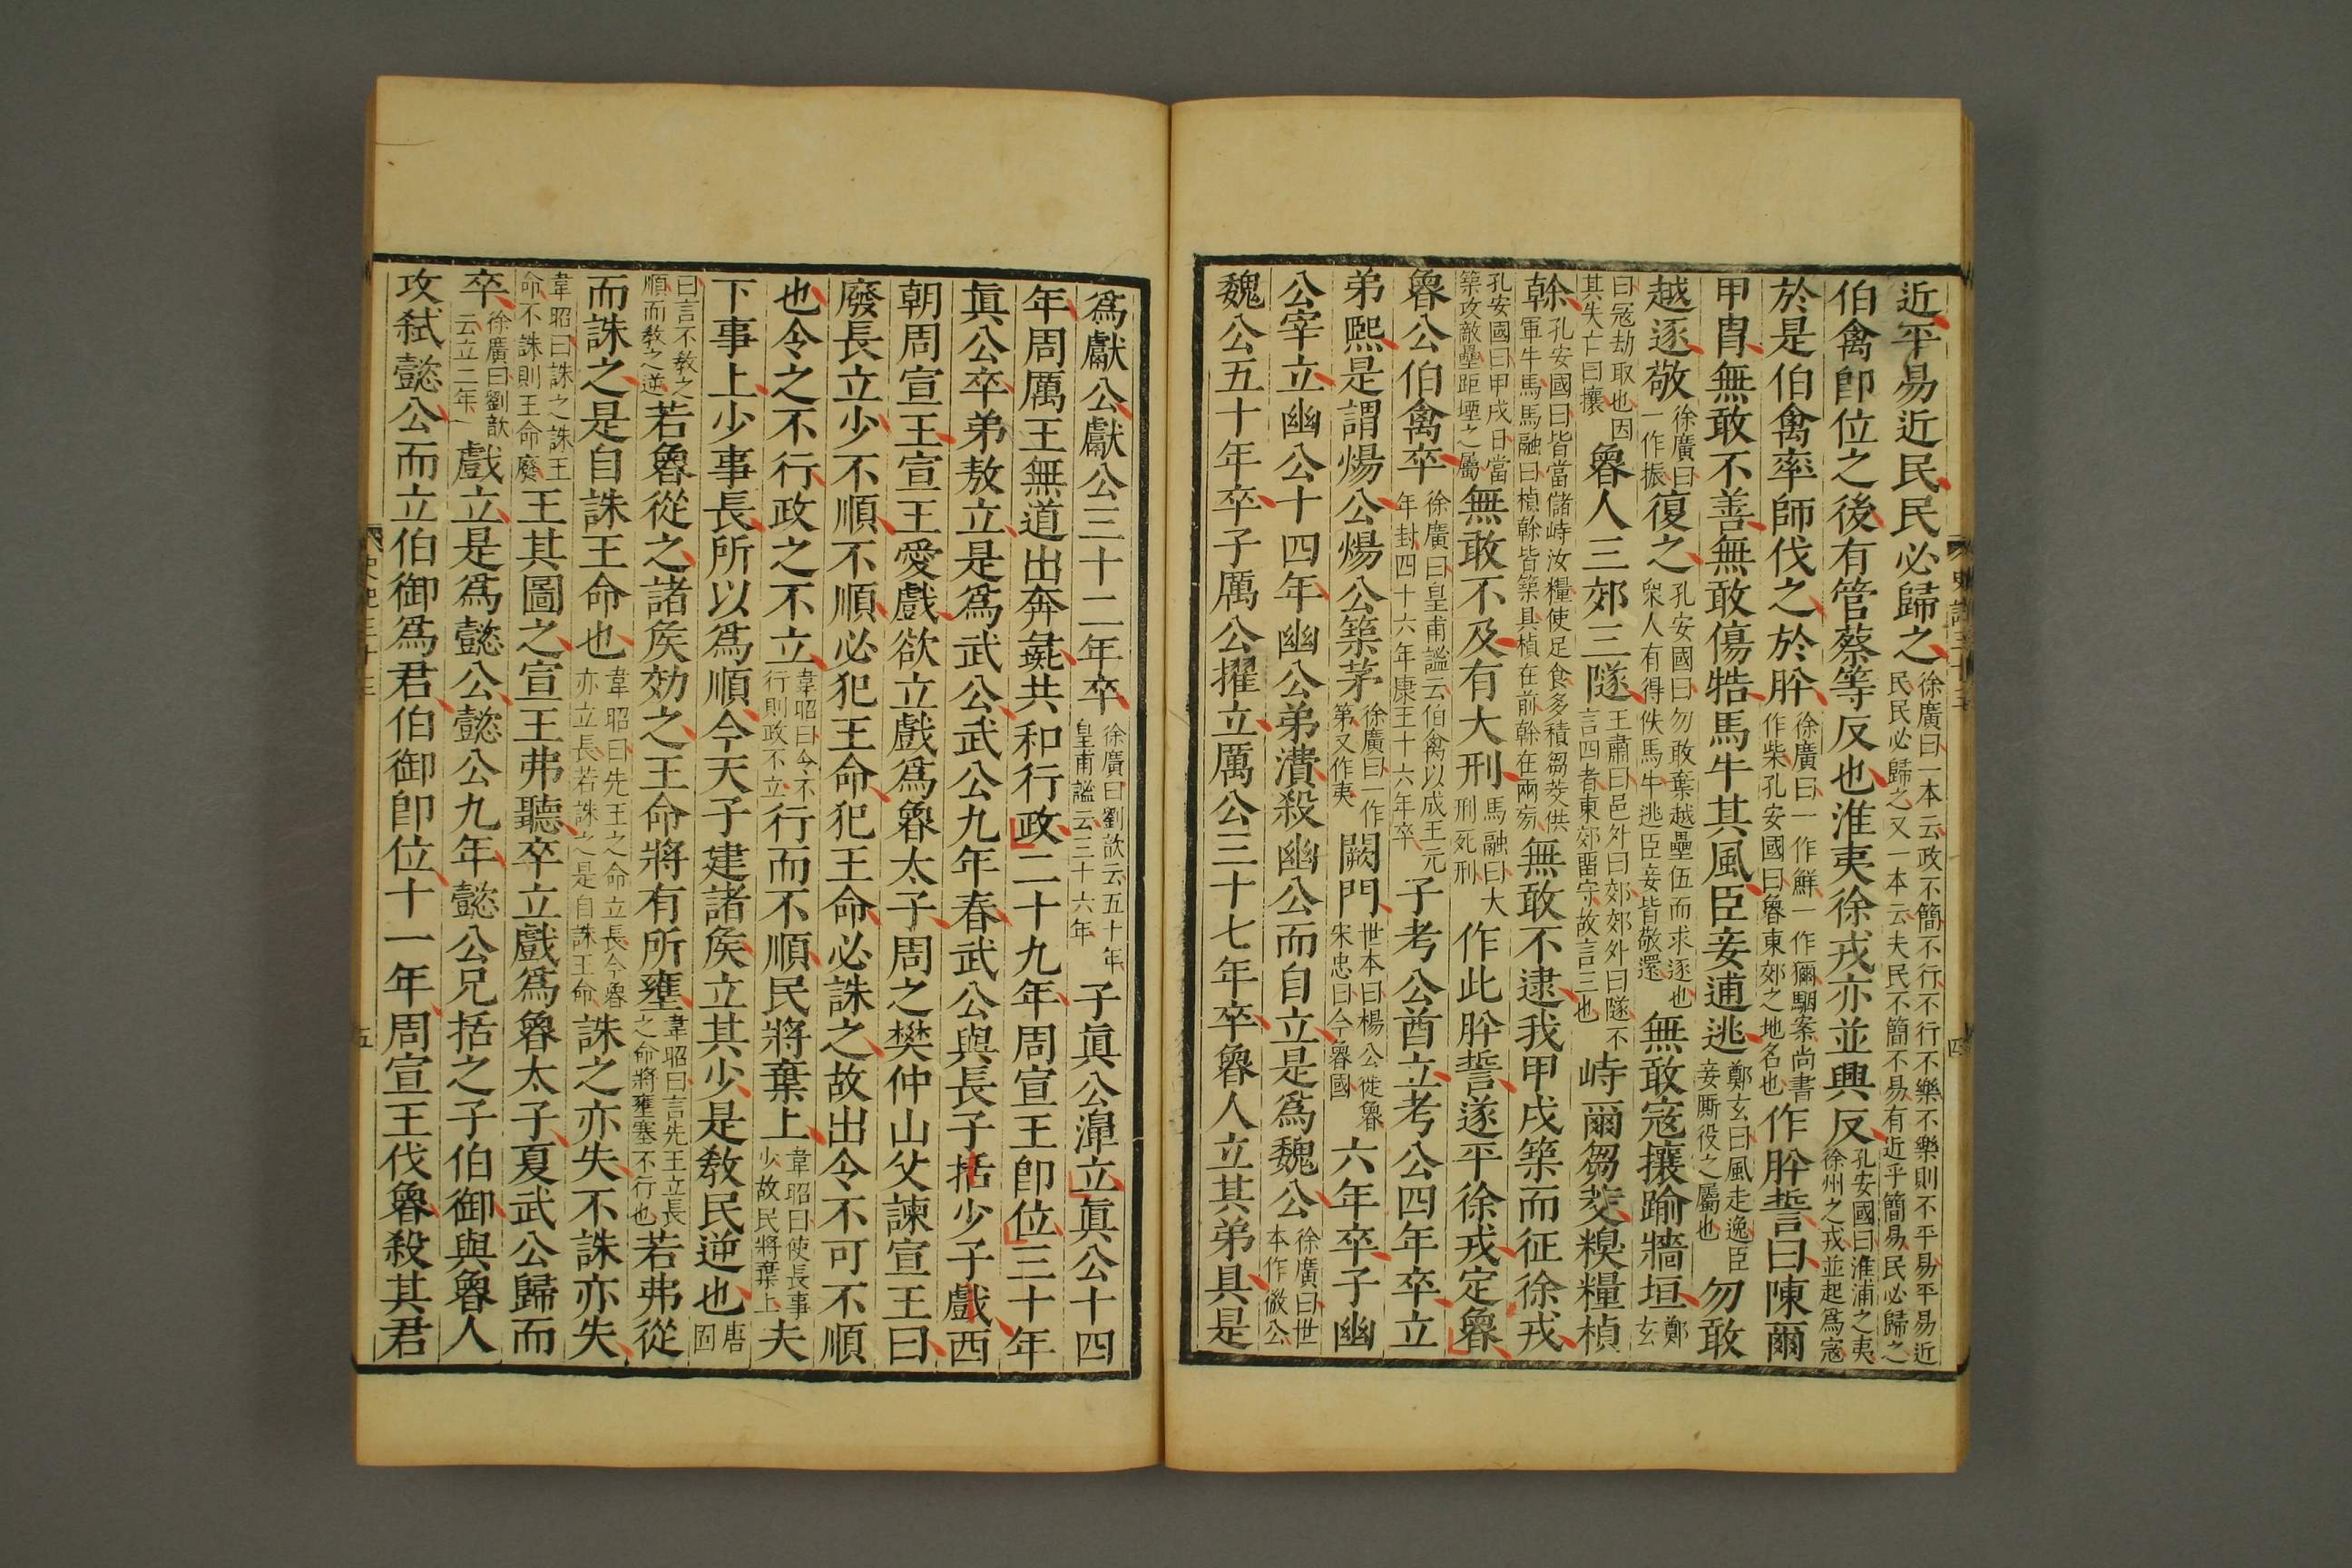 近平易近民民必歸之徐廣曰一本云政不簡不行不行不樂不樂則不平易平易近民民必歸之又一本云夫民不簡不易有近乎簡易民必歸之
伯禽卽位之後有管蔡等反也淮夷徐戎亦並興反孔安國曰淮浦之夷徐州之戎並起爲寇
於是伯禽率師伐之於肸徐廣曰一作鮮一作獮駰案尚書作柴孔安國曰魯東郊之地名也作肸誓曰陳爾
甲胄無敢不善無敢傷牿馬牛其風臣妾逋逃鄭玄曰風走逸臣妾厮役之屬也勿敢
越逐敬徐廣曰一作振復之孔安國曰勿敢棄越壘伍而求逐也衆人有得佚馬牛逃臣妾皆敬還無敢寇攘踰牆垣鄭玄
曰寇劫取也因其失亡曰攘魯人三郊三隧王肅曰邑外曰郊郊外曰隧不言四者東郊畱守故言三也峙爾芻茭糗糧楨
榦孔安國曰皆當儲峙汝糧使足食多積芻茭供軍牛馬馬融曰楨榦皆築具楨在前榦在兩旁無敢不逮我甲戌築而征徐戎
孔安國曰甲戌日當築攻敵壘距堙之屬無敢不及有大刑馬融曰大刑死刑作此肸誓遂平徐戎定魯
魯公伯禽卒徐廣曰皇甫謐云伯禽以成王元年封四十六年康王十六年卒子考公酋立考公四年卒立
弟熙是謂煬公煬公築茅徐廣曰一作第又作夷闕門世本曰楊公徙魯宋忠曰今魯國六年卒子幽
公宰立幽公十四年幽公弟潰殺幽公而自立是爲魏公徐廣曰世本作微公
魏公五十年卒子厲公擢立厲公三十七年卒魯人立其弟具是
爲獻公獻公三十二年卒徐廣曰劉歆云五十年皇甫謐云三十六年子眞公濞立眞公十四
年周厲王無道出奔彘共和行政二十九年周宣王卽位三十年
眞公卒弟敖立是爲武公武公九年春武公與長子括少子戲西
朝周宣王宣王愛戲欲立戲爲魯太子周之樊仲山父諫宣王曰
廢長立少不順不順必犯王命犯王命必誅之故出令不可不順
也令之不行政之不立韋昭曰令不行則政不立行而不順民將棄上韋昭曰使長事少故民將棄上夫
下事上少事長所以爲順今天子建諸矦立其少是敎民逆也唐固
曰言不敎之順而敎之逆若魯從之諸矦効之王命將有所壅韋昭曰言先王立長之命將壅塞不行也若弗從
而誅之是自誅王命也韋昭曰先王之命立長今魯亦立長若誅之是自誅王命誅之亦失不誅亦失
韋昭曰誅之誅王命不誅則王命廢王其圖之宣王弗聽卒立戲爲魯太子夏武公歸而
卒徐廣曰劉歆云立二年戲立是爲懿公懿公九年懿公兄括之子伯御與魯人
攻弑懿公而立伯御爲君伯御卽位十一年周宣王伐魯殺其君